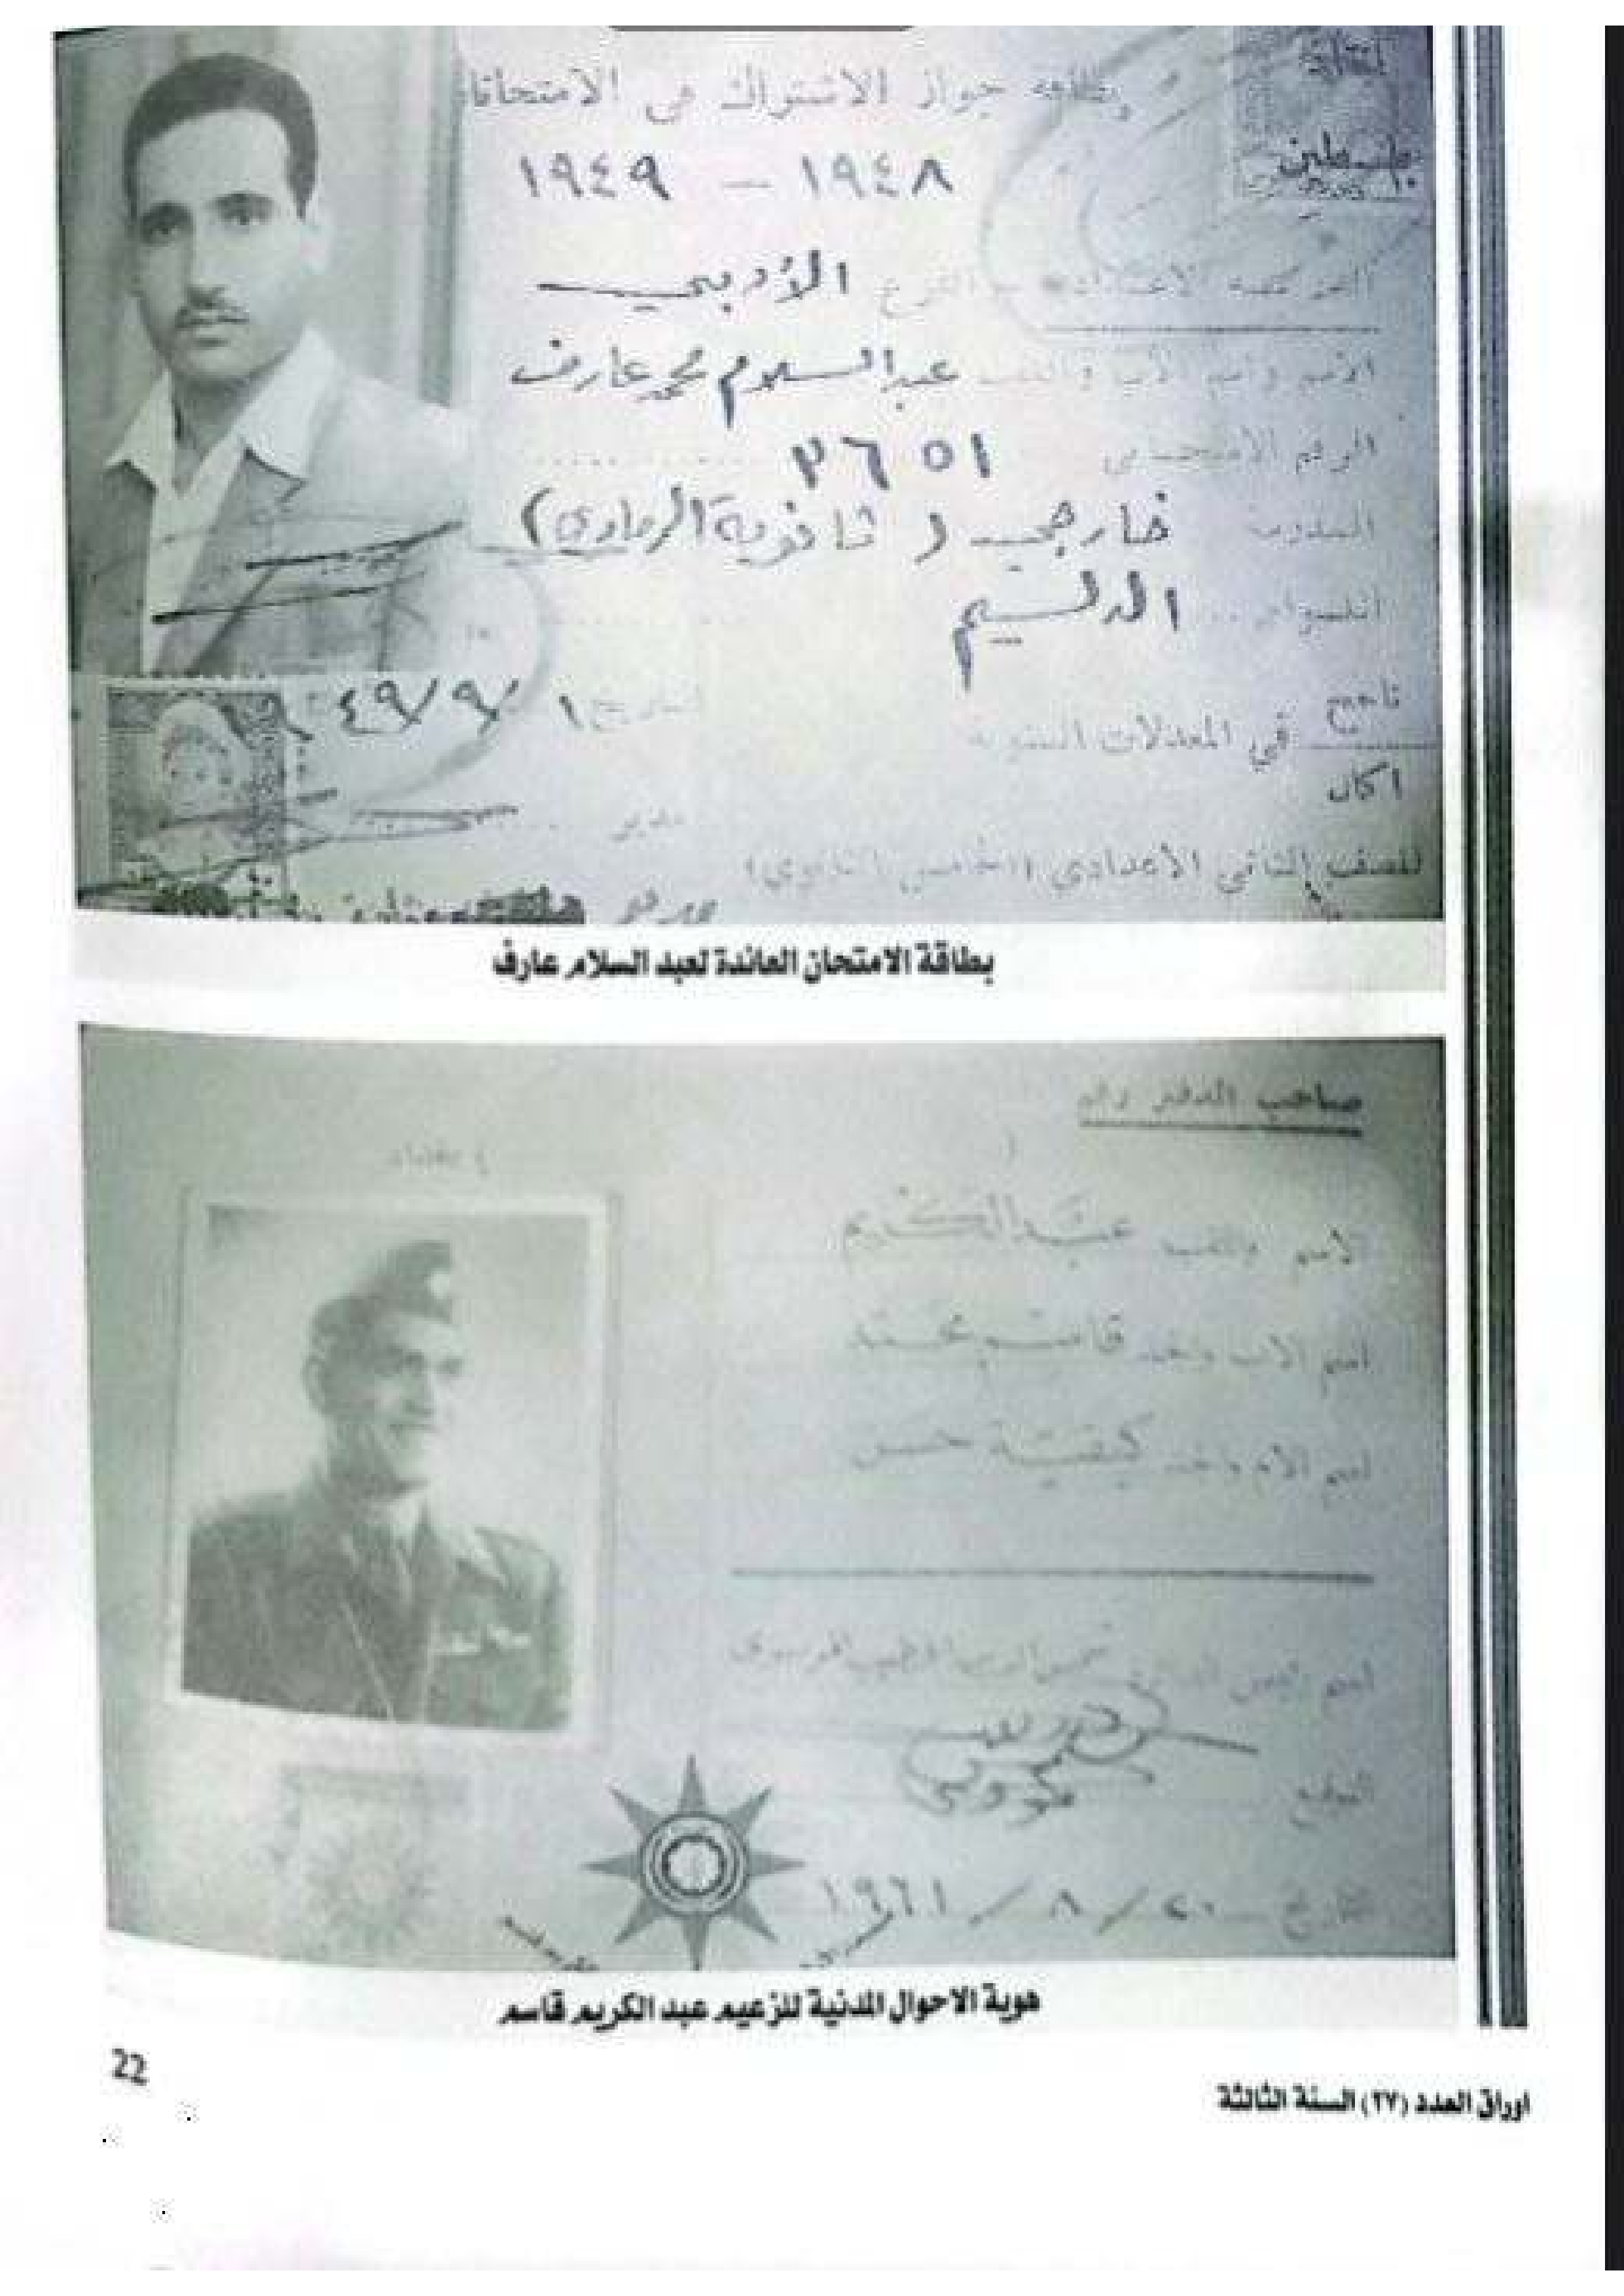 بطاقة جواز الاشتراك في الامتحانات
١٩٤٨ - ١٩٤٩
فلسطين
الفرع الأدبي
الاسم واسم الأب واللقب عبد السلام محمد عارف
الرقم الامتحاني ٣٦٥١
المدرسة خارجي ( ثانوية الرمادي )
اللواء .. الدليم
ناجح
في المعدلات السنوية
اكمال
التاريخ ١ / ٩ / ٤٩
مدير
للصف الثاني الاعدادي (الخامس الثانوي)
بطاقة الامتحان العائدة لعبد السلام عارف
صاحب الدفتر رقم
الاسم واللقب عبد الكريم
اسم الاب وجد قاسم محمد
اسم الأم وجد كيفية حسن
اسم
التوقيع
تاريخ ٢٠ / ٨ / ١٩٦١
هوية الاحوال المدنية للزعيم عبد الكريم قاسم
22
اوراق العدد (٢٧) السنة الثالثة